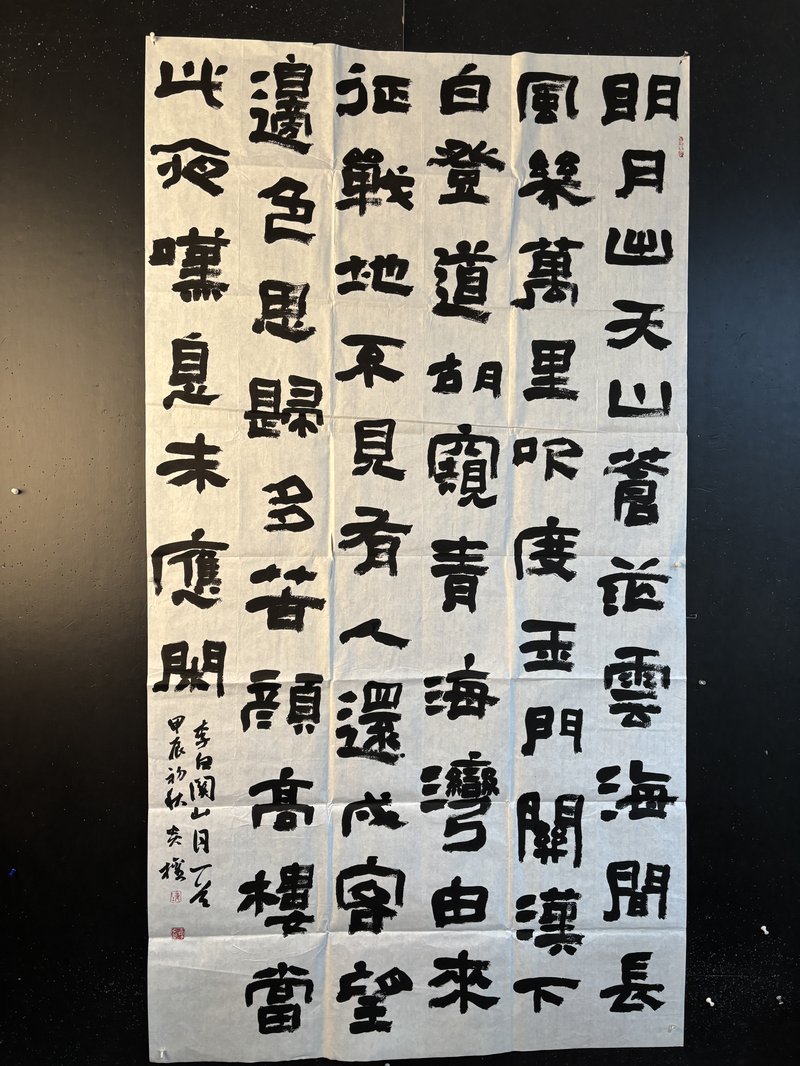 明月出天山蒼茫雲海間長
風幾萬里吹度玉門關漢下
白登道胡窺青海灣由來
征戰地不見有人還戍客望
邊色思歸多苦顏高樓當
此夜嘆息未應閑
李白関山月一首
甲辰初秋